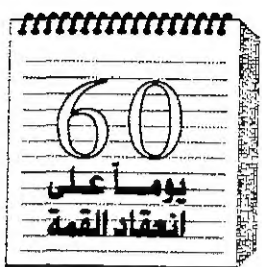 60
يومـاً على
انعقاد القمة